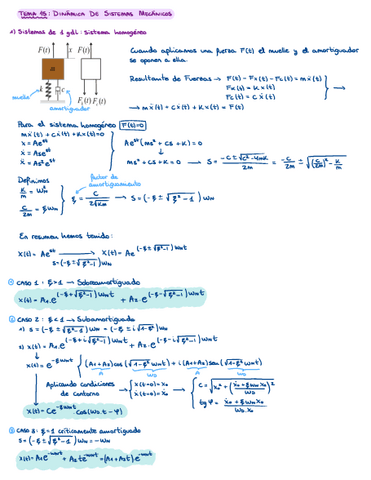 TEMA 15: DINÁMICA DE SISTEMAS MECÁNICOS
1) Sistemas de 1 gdl: sistema homogéneo
F(t) F(t)
Cuando aplicamos una fuerza F(t) el muelle y el amortiguador
se oponen a ella.
m
Resultante de Fuerzas → F(t) - Fk(t) - Fc(t) = mẍ(t)
Fk(t) = K x(t)
Fc(t) = C ẋ(t)
k c
muelle
amortiguador
Fk(t) Fc(t)
→ mẍ(t) + Cẋ(t) + Kx(t) = F(t)
Para el sistema homogéneo F(t)=0
mẍ(t) + cẋ(t) + Kx(t) = 0
x = Ae^st
ẋ = Ase^st
ẍ = As²e^st
Ae^st (ms² + cs + K) = 0
ms² + cs + K = 0 → s = (-c ± √(c² - 4mk))/2m = -c/2m ± √((c/2m)² - K/m)
Definimos
factor de
amortiguamiento
K/m = Wn²
c/2m = ξWn
ξ = c/(2√(km)) → s = (-ξ ± √(ξ² - 1)) Wn
En resumen hemos tenido:
x(t) = Ae^st → x(t) = Ae^(-ξ ± √(ξ²-1)) Wnt
s = (-ξ ± √(ξ²-1)) Wn
① CASO 1: ξ > 1 → Sobreamortiguado
x(t) = A1·e^(-ξ+√(ξ²-1)) Wnt + A2·e^(-ξ-√(ξ²-1)) Wnt
② CASO 2: ξ < 1 → Subamortiguado
1) s = (-ξ ± √(ξ²-1)) Wn = (-ξ ± i√(1-ξ²)) Wn
2) x(t) = A1·e^(-ξ+i√(1-ξ²)) Wnt + A2·e^(-ξ-i√(1-ξ²)) Wnt
x(t) = e^-ξWnt { (A1+A2) cos(√(1-ξ²) Wnt) + i(A1-A2) sen(√(1-ξ²) Wnt)
WD WD
Aplicando condiciones
de contorno
x(t=0) = x0
ẋ(t=0) = ẋ0
C = √(x0² + ((ẋ0 + ξWnx0)/WD)²)
tgφ = (ẋ0 + ξWnx0)/(WDx0)
x(t) = Ce^-ξWnt · cos(WD·t - φ)
③ CASO 3: ξ = 1 críticamente amortiguado
s = (-ξ ± √(ξ²-1)) Wn = -Wn
x(t) = A1e^-Wnt + A2te^-Wnt = (A1 + A2t)e^-Wnt